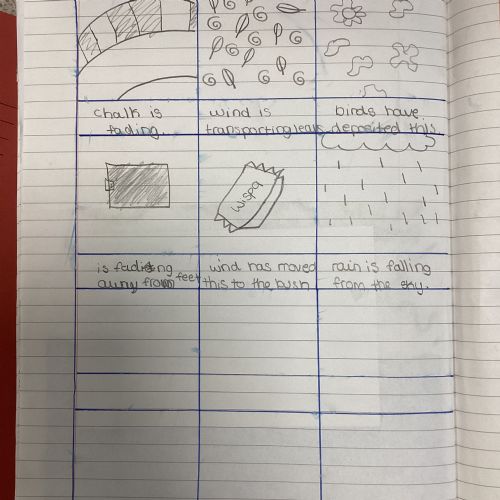 chalk is
fading.
wind is
transporting leafs
birds have
deposited this
wispa
is fading
away from feet
wind has moved
this to the bush
rain is falling
from the sky.